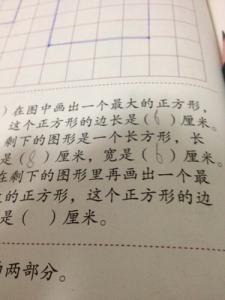 )在图中画出一个最大的正方形，
这个正方形的边长是(6)厘米。
剩下的图形是一个长方形，长
是(8)厘米，宽是(6)厘米。
在剩下的图形里再画出一个最
的正方形，这个正方形的边
是(  )厘米。
两部分。